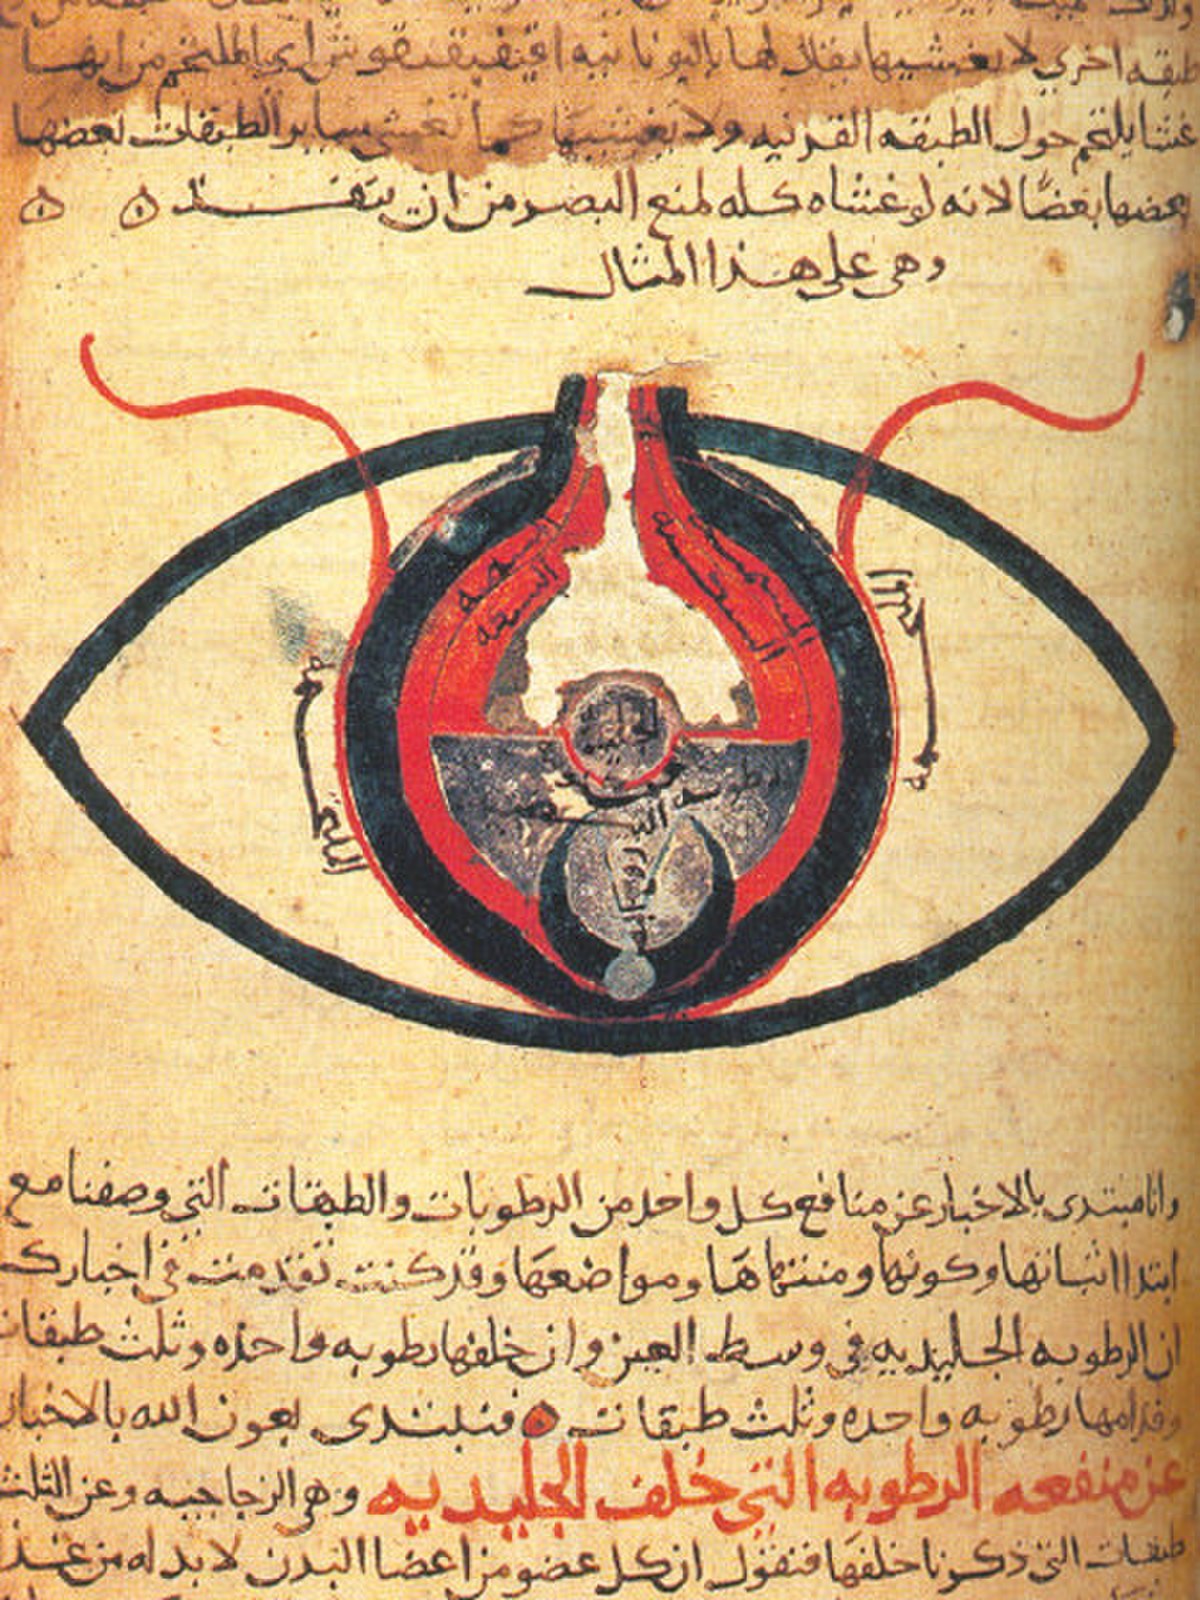 طبقه اخري لا يغشيها يقال لها باليونانيه اي الملتحم من انها
غشا يلتحم حول الطبقه القرنيه ولا يغشيها كما تغشي ساير الطبقات بعضها
بعضها بعضا لانه لو غشاه كله لمنع البصر من ان ينفذ
وهي علي هذا المثال
الملتحمه
الملتحمه
الجليديه
وانا مبتدي بالاخبار عن منافع كل واحد من الرطوبات والطبقات التي وصفنا مع
ابتدا اثباتها وكونها ومنتهاها ومواضعها وقد كنت تقدمت في اخبارك
ان الرطوبه الجليديه في وسط العين وان خلفها رطوبه واحده وثلث طبقات
وقدامها رطوبه واحده وثلث طبقات فنبتدي بعون الله بالاخبار
عن منفعه الرطوبه التي خلف الجليديه وهي الزجاجيه وعن الثلث
طبقات التي ذكرنا خلفها فنقول ان كل عضو من اعضا البدن لا بد له من